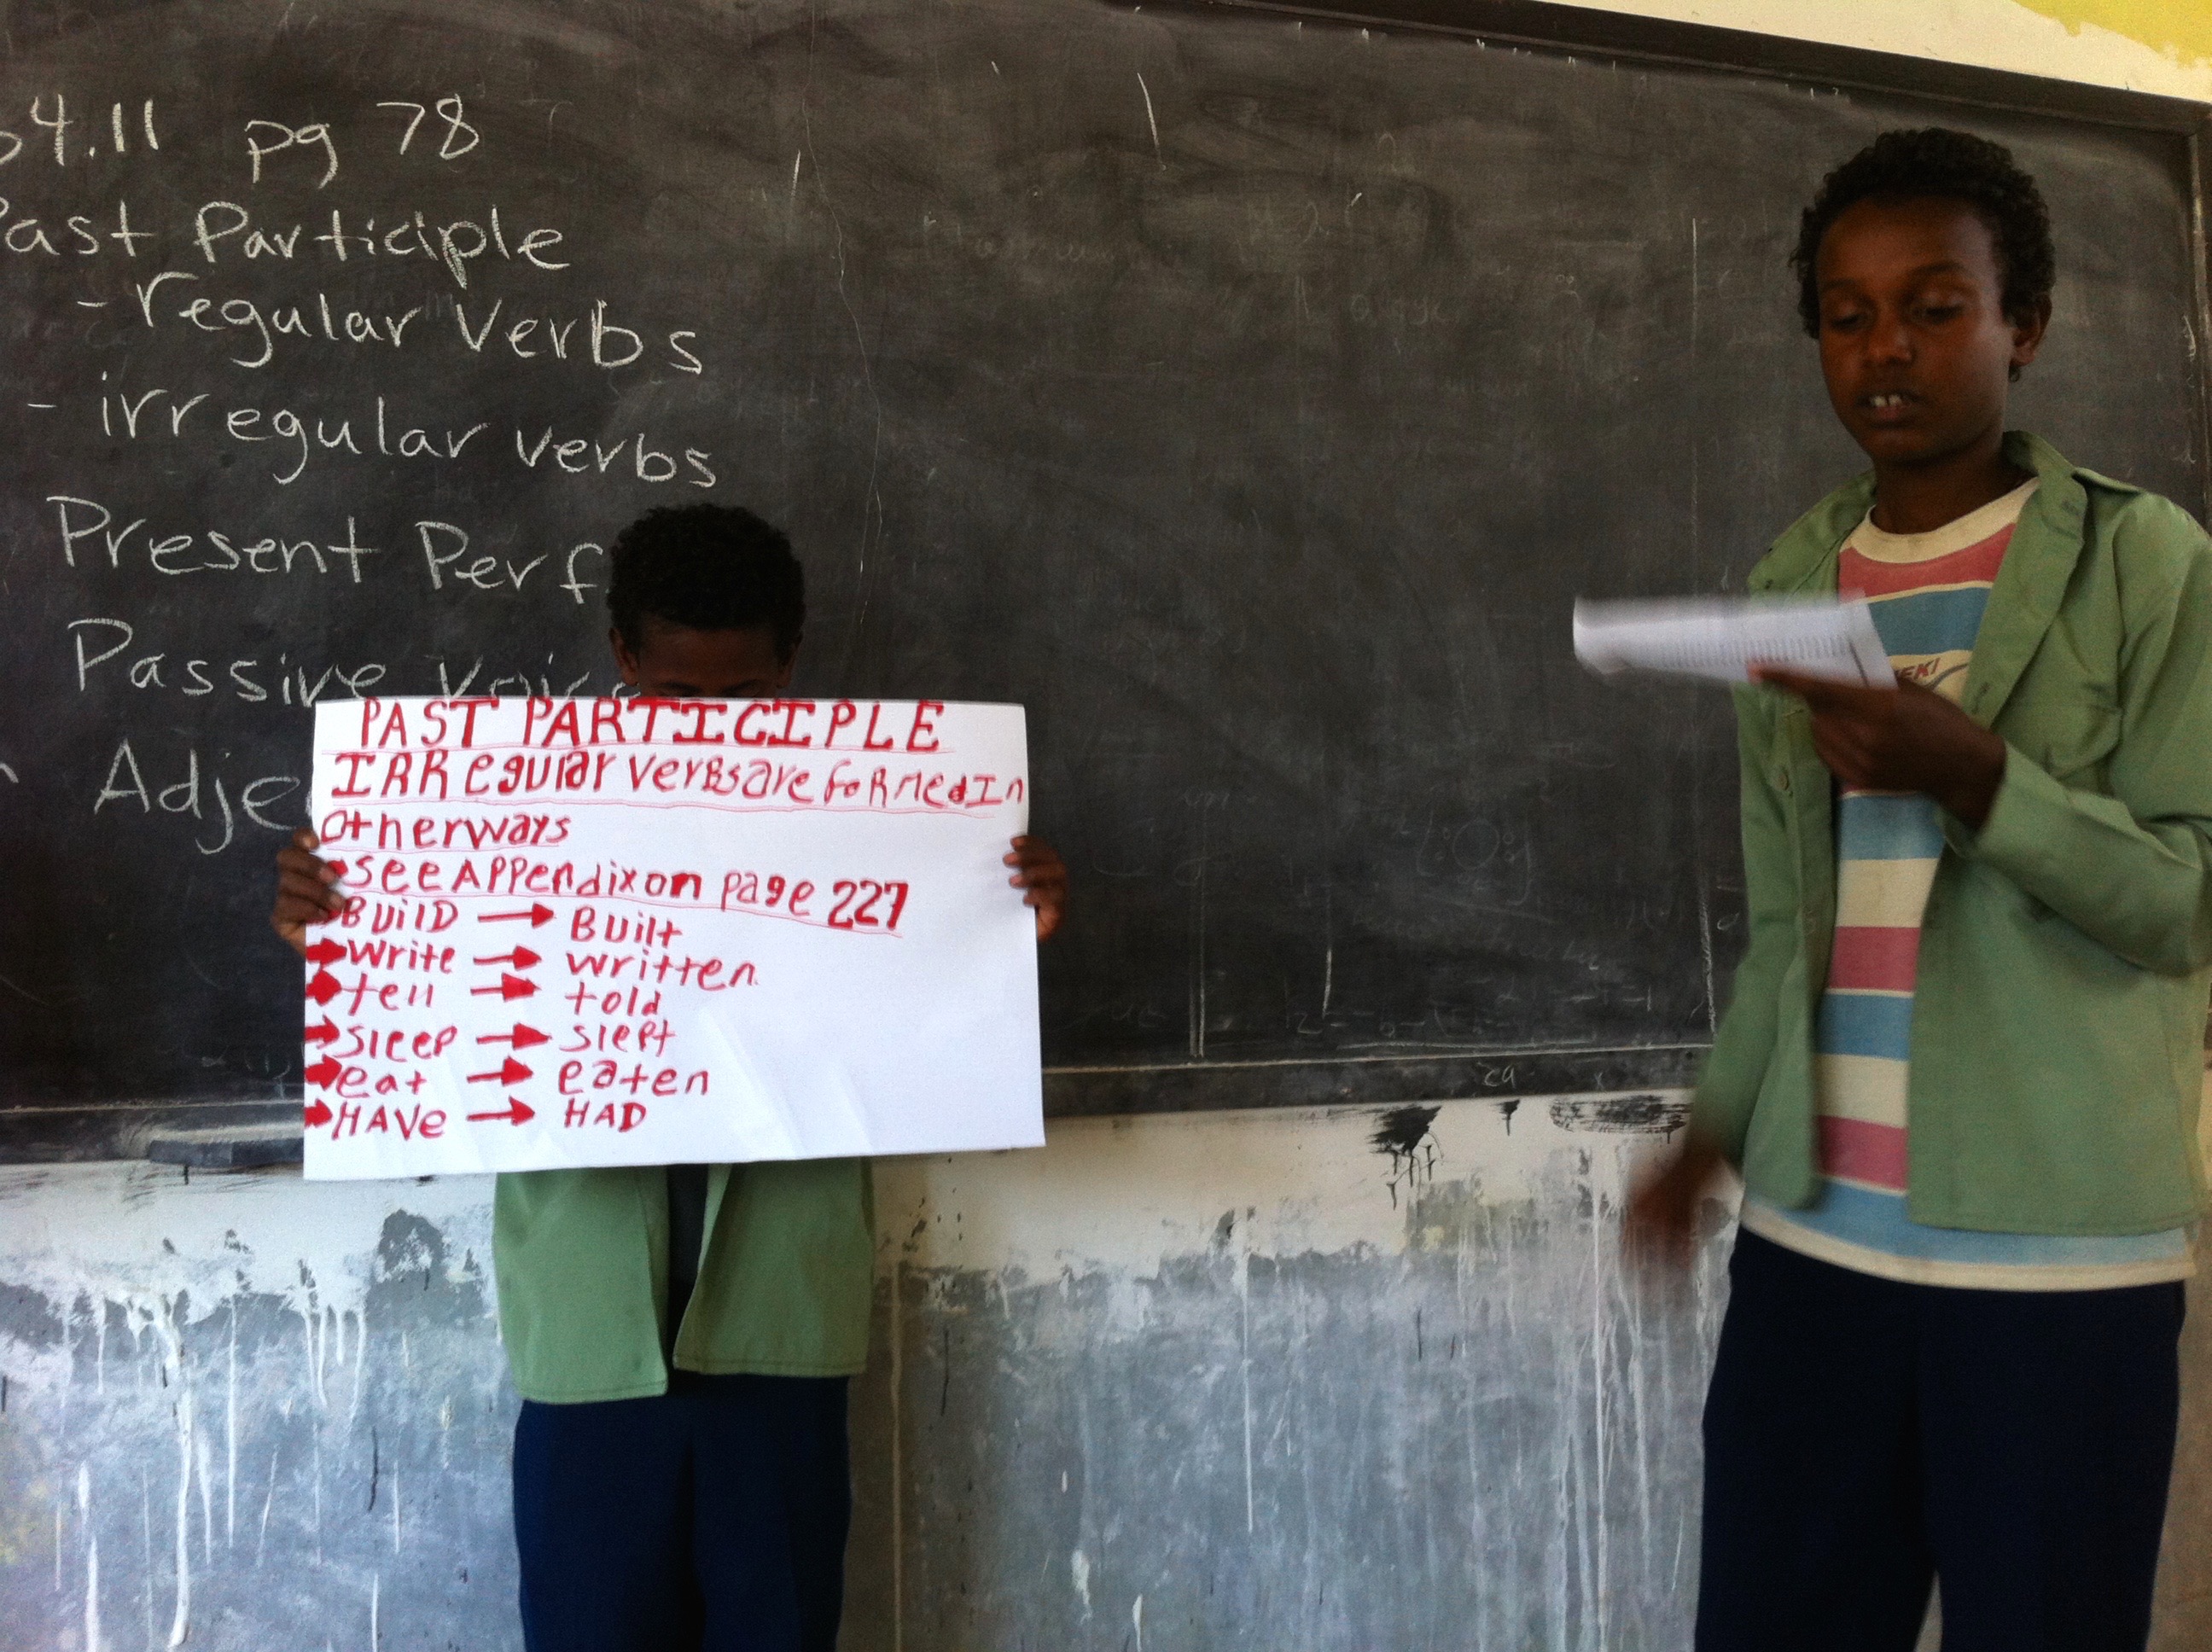 4.11 pg 78
Past Participle
- regular verbs
- irregular verbs
Present Perf
Passive voice
Adje
PAST PARTICIPLE
IRRegular verBs are foRMed In
otherways
see APPendix on page 227
BUilD → BUilt
write → written
tell → told
sleep → slept
eat → eaten
HAVe → HAD